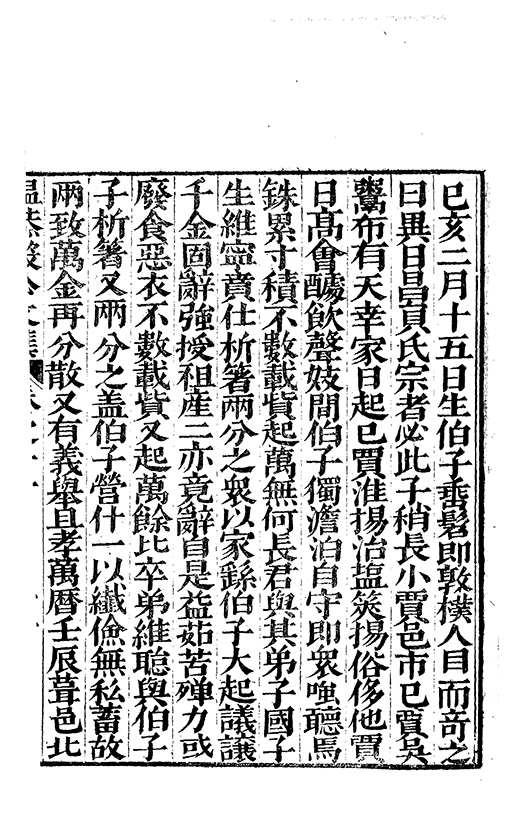 己亥二月十五日生伯子垂髫即敦樸人目而竒之
曰異日昌員氏宗者必此子稍長小賈邑市已賈吳
鬻布有天幸家日起已賈淮揚治盐筴揚俗侈他賈
日高會醵飲聲妓間伯子獨澹泊自守即衆嗤聽焉
銖累寸積不數載貲起萬無何長君與其弟子國子
生維寧賁仕析箸兩分之衆以家繇伯子大起議讓
千金固辭強授祖産二亦竟辭自是益茹苦殫力或
廢食惡衣不數載貲又起萬餘比卒弟維聦與伯子
子析箸又兩分之盖伯子營什一以纖儉無私蓄故
兩致萬金再分散又有義舉且孝萬曆壬辰葺邑北
温恭毅公文集